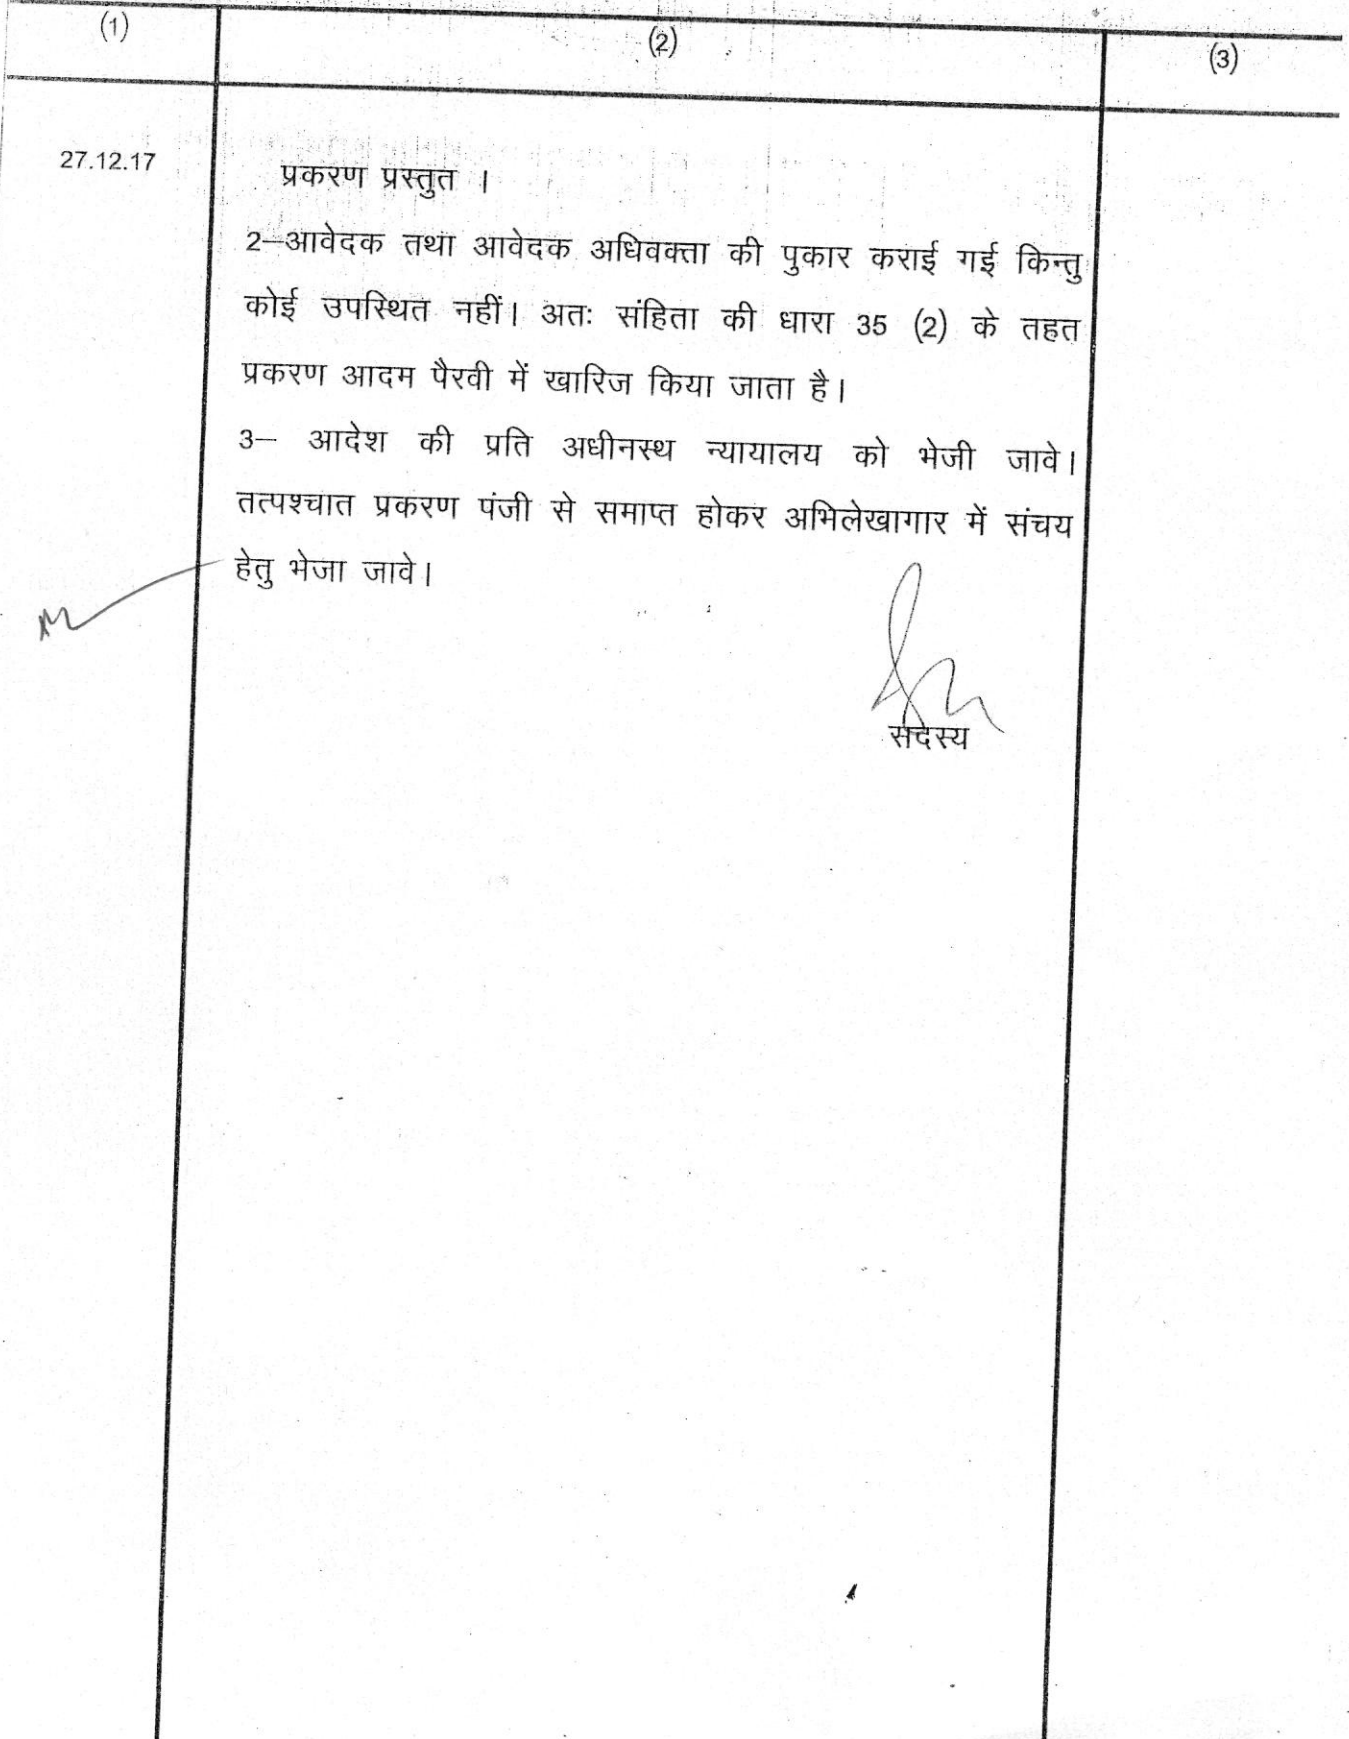 (1) (2) (3)
27.12.17 प्रकरण प्रस्तुत ।
2–आवेदक तथा आवेदक अधिवक्ता की पुकार कराई गई किन्तु
कोई उपस्थित नहीं। अतः संहिता की धारा 35 (2) के तहत
प्रकरण आदम पैरवी में खारिज किया जाता है।
3– आदेश की प्रति अधीनस्थ न्यायालय को भेजी जावे।
तत्पश्चात प्रकरण पंजी से समाप्त होकर अभिलेखागार में संचय
हेतु भेजा जावे।
सदस्य